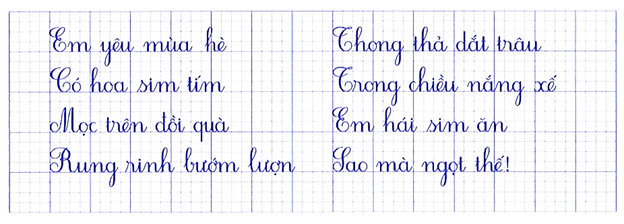 Em yêu mùa hè
Có hoa sim tím
Mọc trên đồi quà
Rung rinh bướm lượn
Thong thả dắt trâu
Trong chiều nắng xế
Em hái sim ăn
Sao mà ngọt thế!